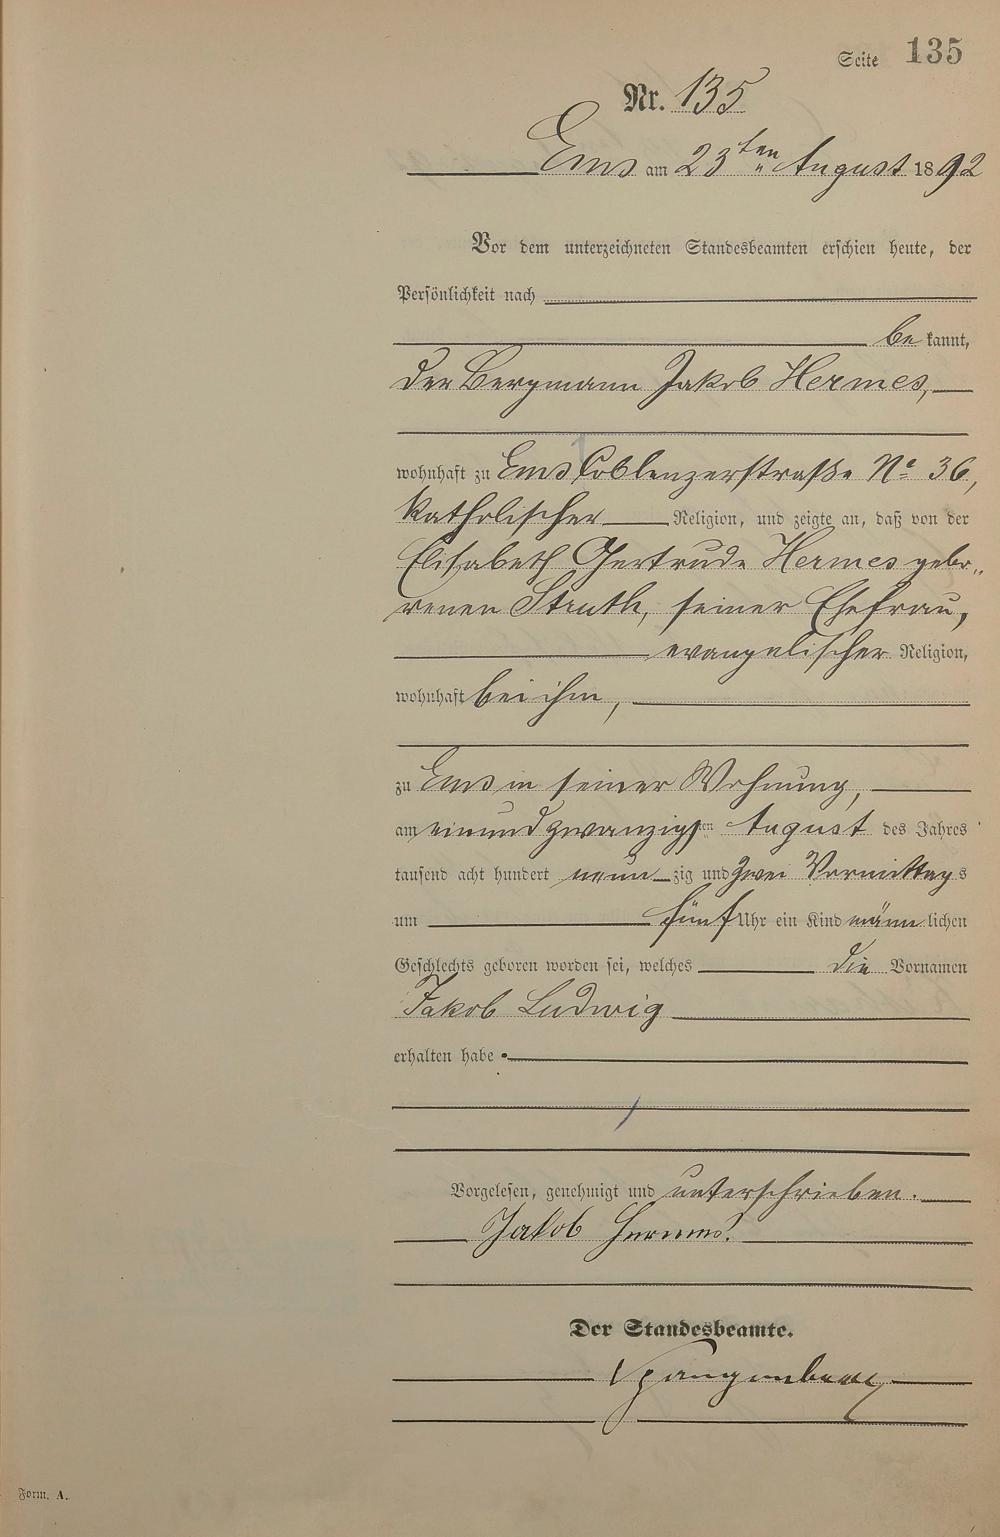 Seite 135
Nr. 135
Ems am 23ten August 1892
Vor dem unterzeichneten Standesbeamten erschien heute, der
Persönlichkeit nach
be kannt,
der Bergmann Jakob Hermes,
wohnhaft zu Ems, Coblenzerstraße No 36,
katholischer Religion, und zeigte an, daß von der
Elisabeth Gertrude Hermes gebo-
renen Struth, seiner Ehefrau,
evangelischer Religion,
wohnhaft bei ihm,
zu Ems in seiner Wohnung,
am einund zwanzigsten August des Jahres
tausend acht hundert neun zig und zwei Vormittags
um fünf Uhr ein Kind männ lichen
Geschlechts geboren worden sei, welches die Vornamen
Jakob Ludwig
erhalten habe.
Vorgelesen, genehmigt und unterschrieben.
Jakob Hermes.
Der Standesbeamte.
Spangenberg
Form. A.